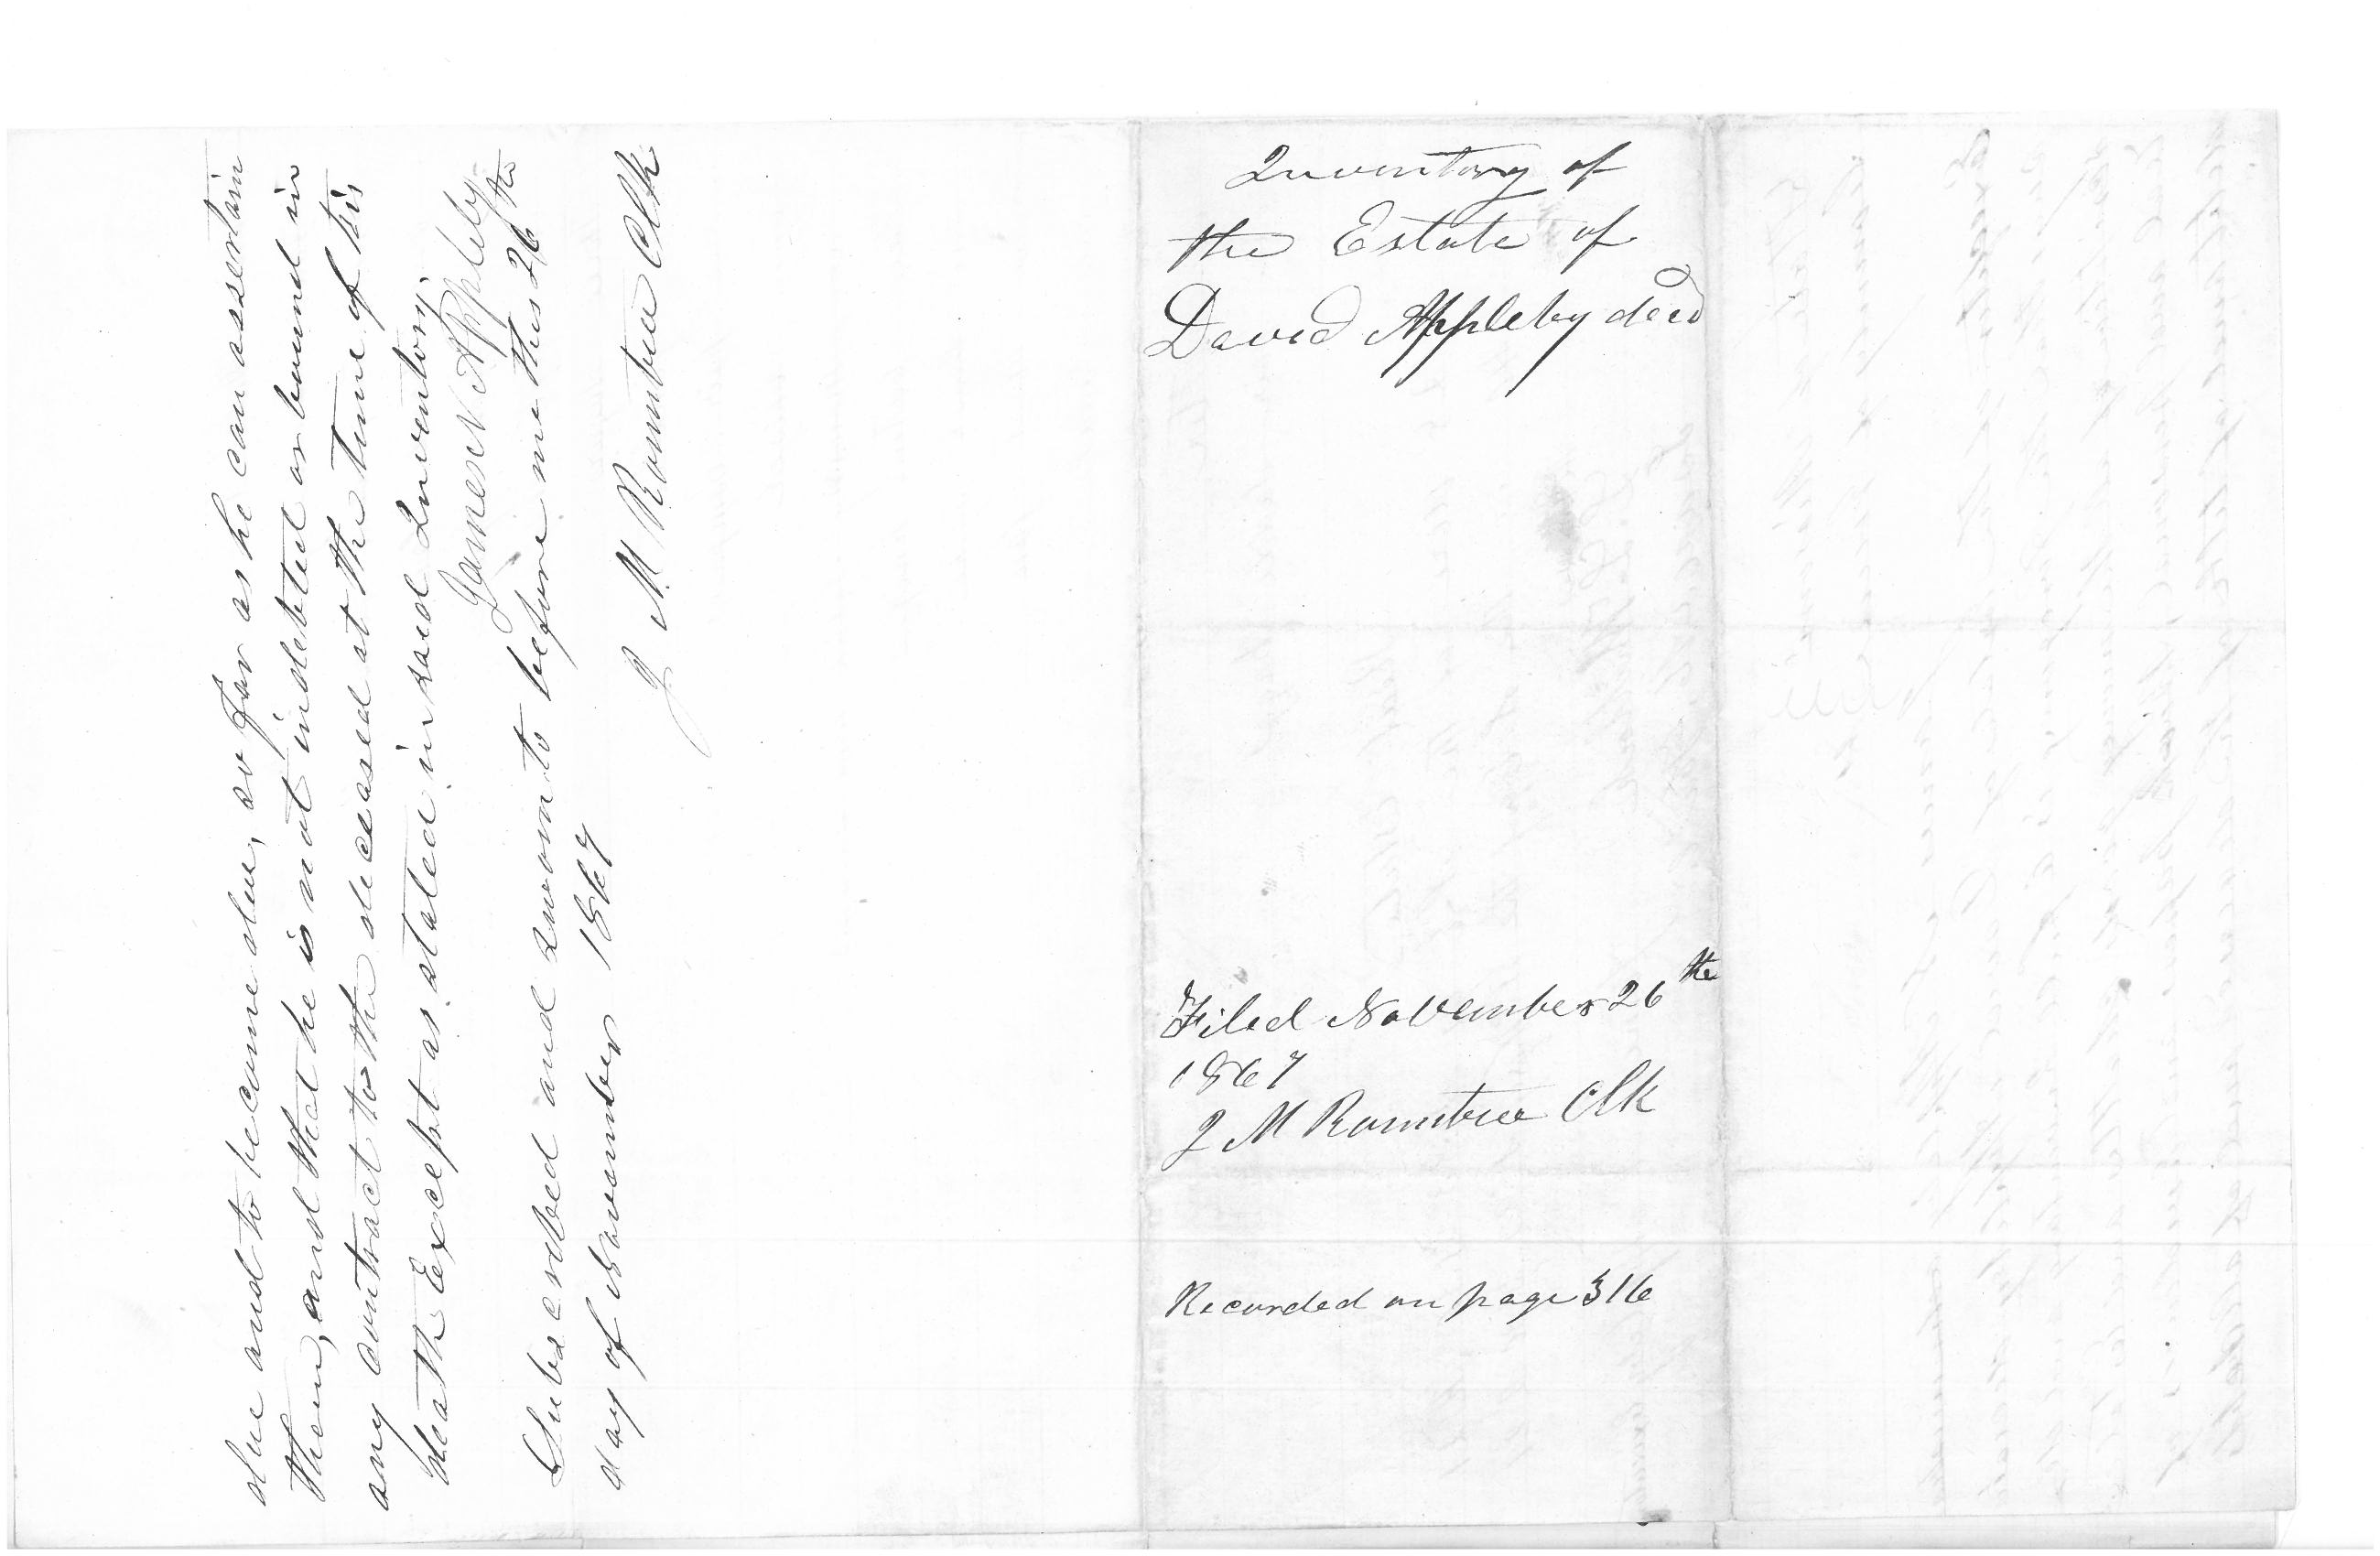 due and to become due, so far as he can assertain
them, and that he is not indebted or bound in
any contract to the deceased at the time of his
death Except as stated in said Inventory.
James N Appleby
Subscribed and sworn to before me this 26th
day of November 1867
J M Rountree Clk
Inventory of
the Estate of
David Appleby decd
Filed November 26th
1867
J M Rountree Clk
Recorded on page 316